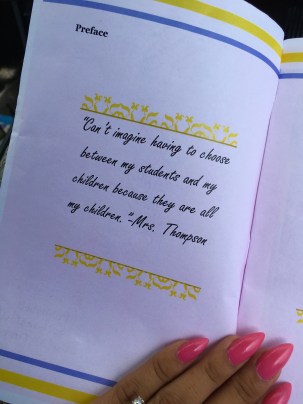 Preface
"Can't imagine having to choose
between my students and my
children because they are all
my children."-Mrs. Thompson